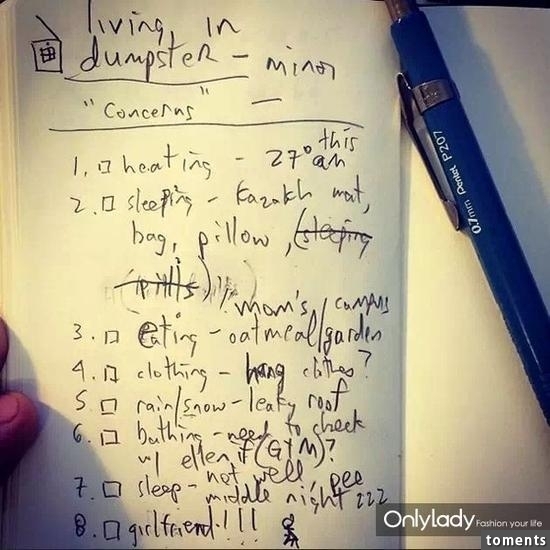 living in
dumpster - minor
"concerns" -
1. heating - 27° this am
2. sleeping - Kazakh mat,
bag, pillow, (sleeping
pills)
mom's/campus
3. eating - oatmeal/garden
4. clothing - hang clothes?
5. rain/snow - leaky roof
6. bathing - need to check
w/ ellen if (GYM)?
7. sleep - not well, pee
middle night zzz
8. girlfriend!!!
0.7mm Pentel P207
Onlylady Fashion your life
toments